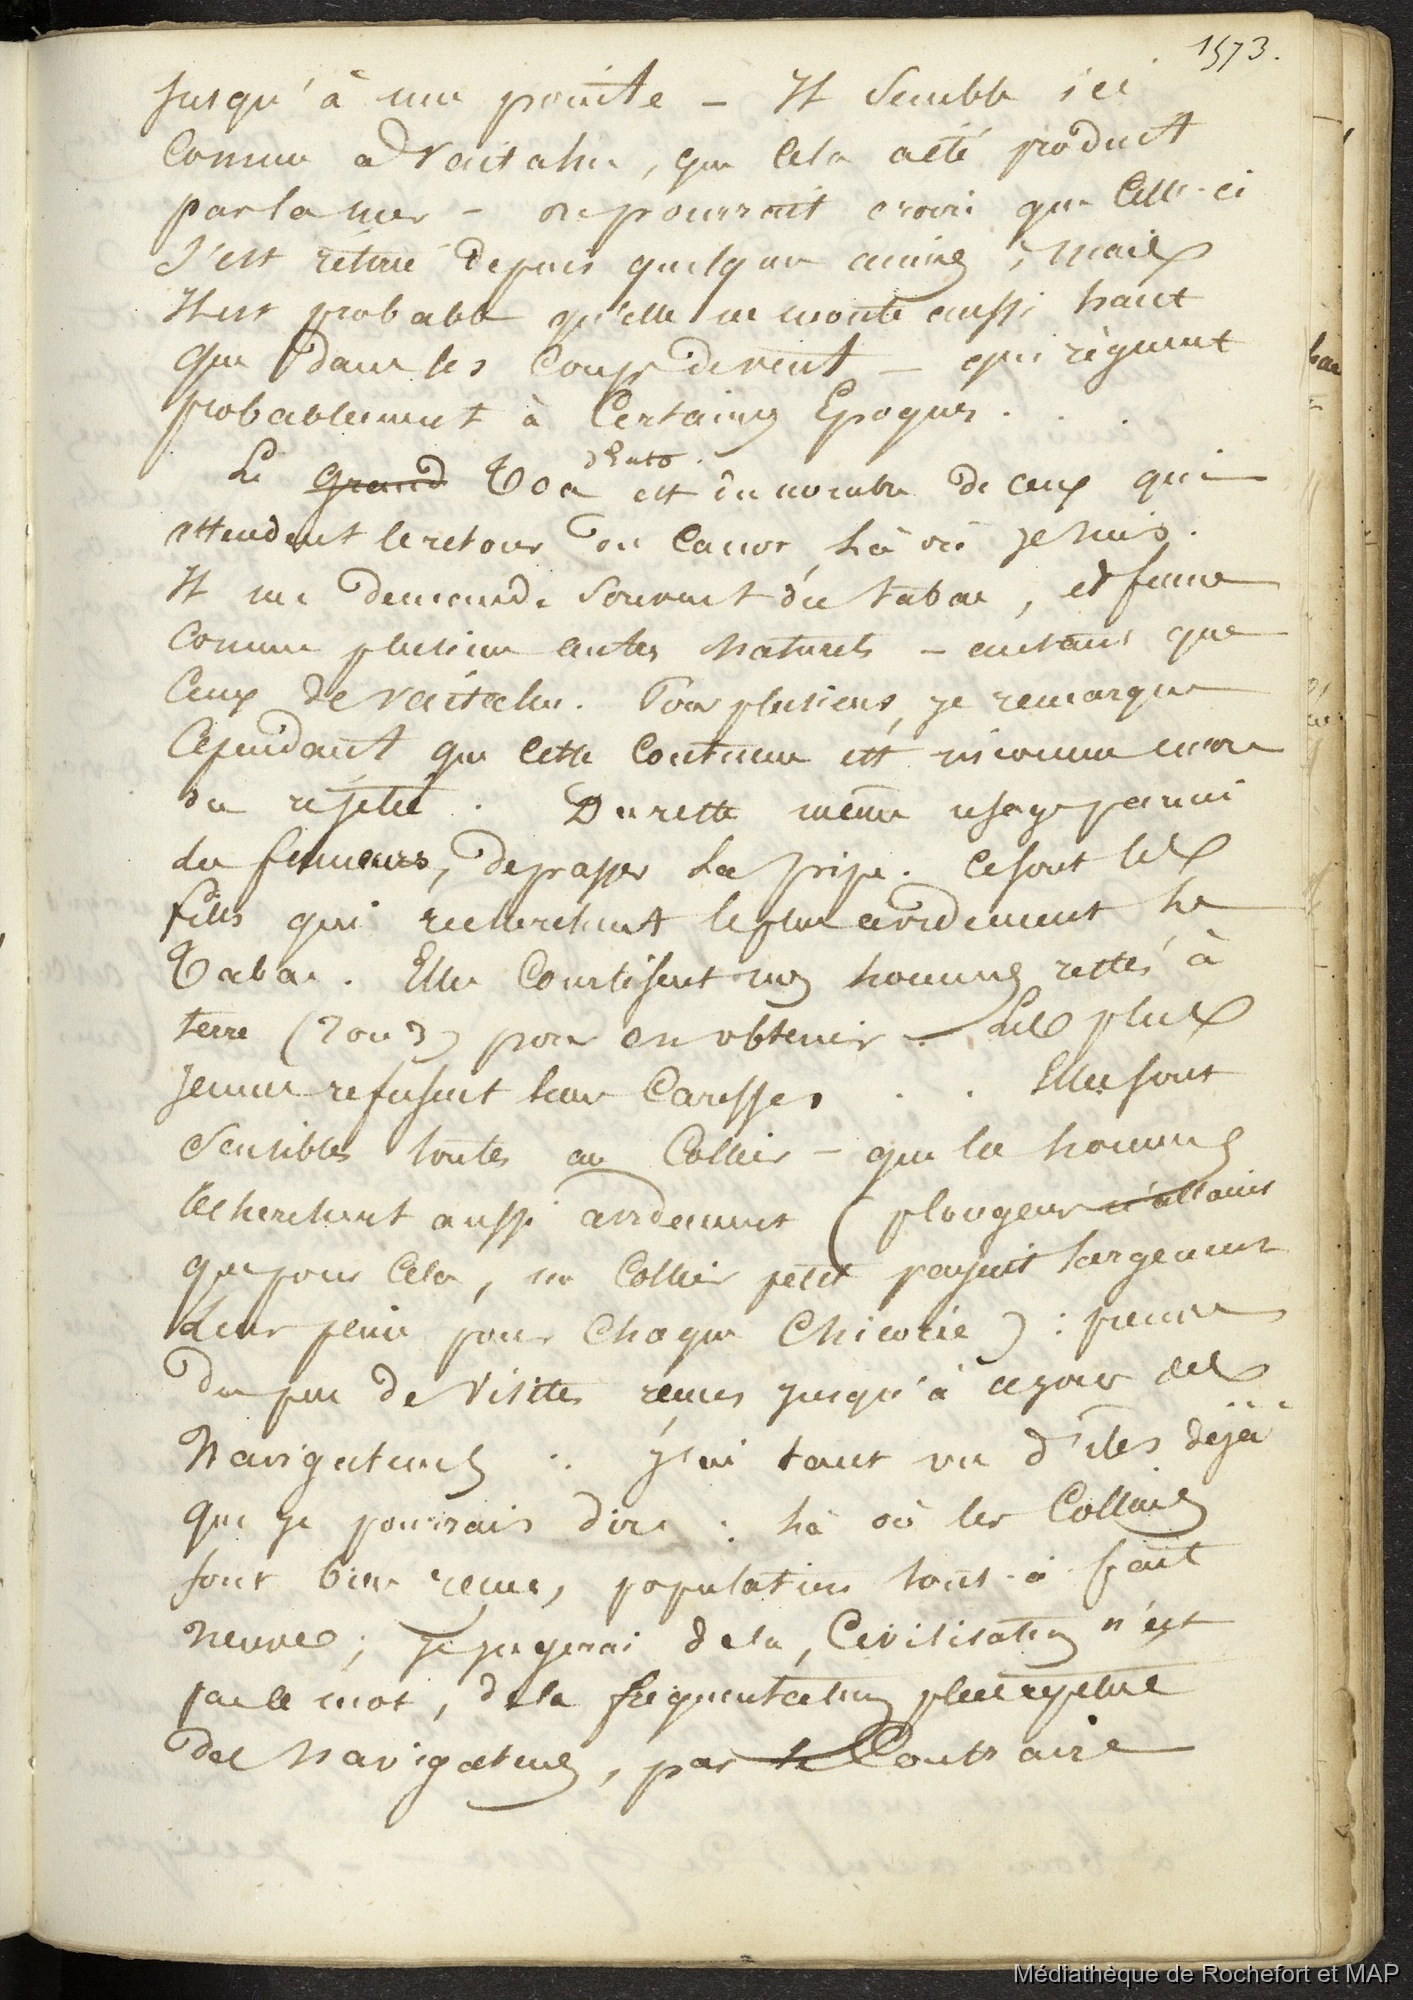 1573.
Jusqu'à une pointe – Il semble ici
Comme à Vaitahu, que Cela a été produit
par la mer – on pourrait croire que Celle-ci
S'est retirée depuis quelques années ; mais
Il est probable qu'elle ne monte aussi haut
que dans les Coups de vent – qui règnent
probablement à Certaines Epoques . . .
Le grand Toa d'hato est du nombre de ceux qui
attendent le retour du Canot, là où je suis.
Il me demande Souvent du tabac, et fume
Comme plusieurs autres naturels – autant que
Ceux de Vaitahu. Pour plusieurs, je remarque
Cependant que Cette Coutume est inconnue encore
ou rejetée. Du reste même usage parmi
les fumeurs, de passer La pipe. Ce sont les
filles qui recherchent le plus avidement le
Tabac. Elles Courtisent mes hommes restés à
terre (2 ou 3) pour en obtenir. Les plus
Jeunes refusent leurs Caresses . . Elles sont
Sensibles toutes au Collier – que les hommes
recherchent aussi avidemment (plongeurs n'allaient
que pour Cela, un Collier petit payait largement
Leur peine pour Chaque Chicorée) : preuve
du peu de Visites reçues jusqu'à ce jour des
Navigateurs : J'ai tant vu d'iles déjà
que je pourrais dire : là où les Colliers
sont bien reçus, population tout-à-fait
neuve ; je jugerai de la, Civilisation n'est
pas le mot, de la fréquentation
des Navigateurs, par le Contraire